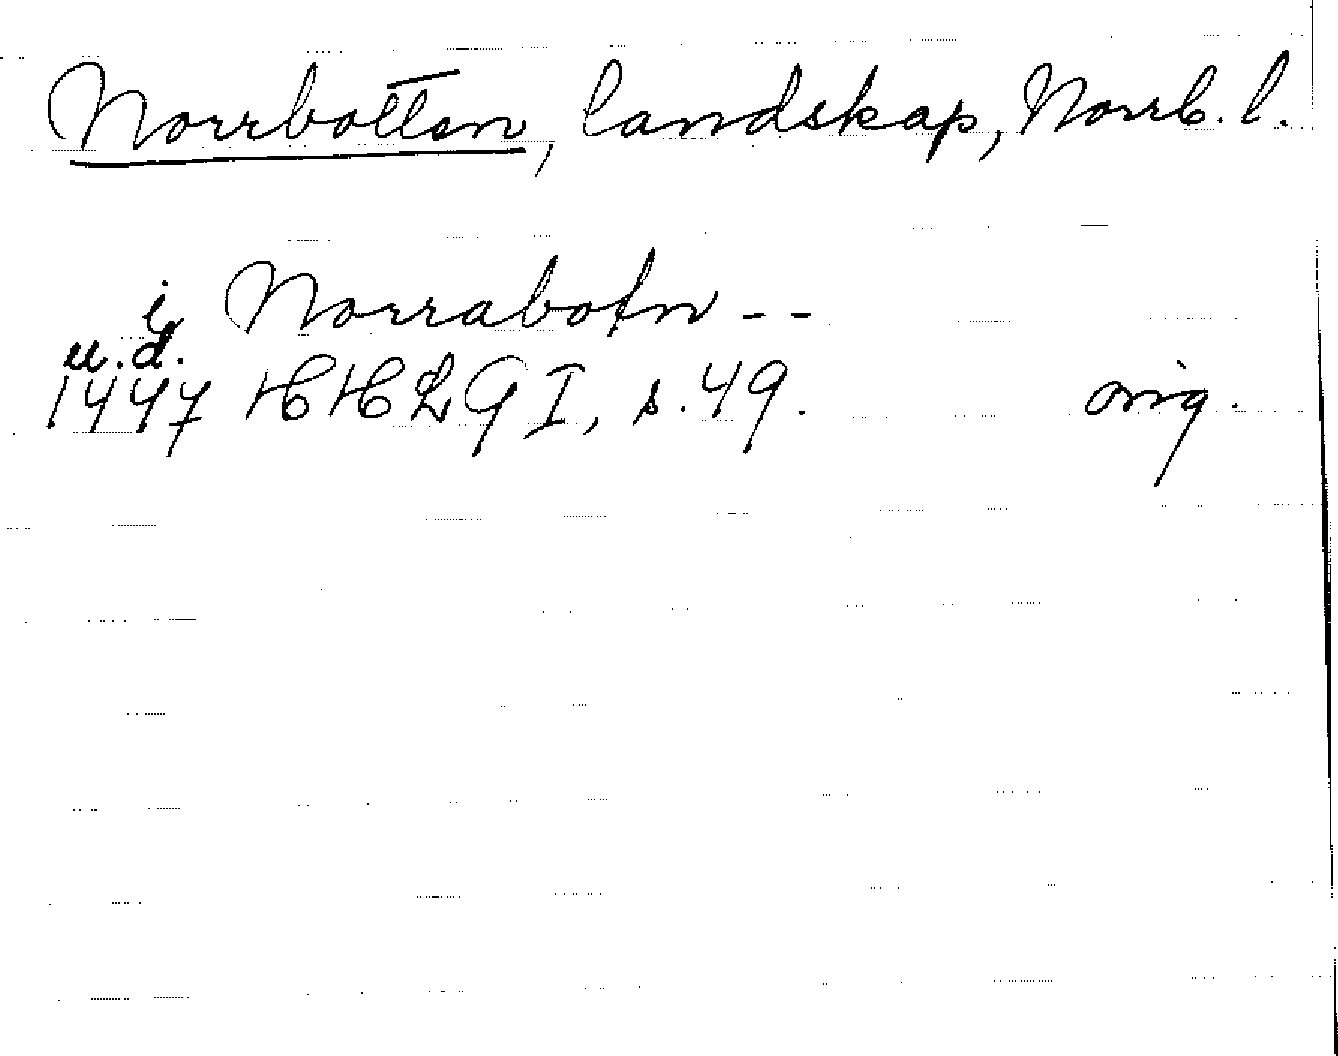 Norrbotten, landskap, Norrb. l.
i Norrabotn --
u.d.
1447 HHLG I, s. 49. orig.